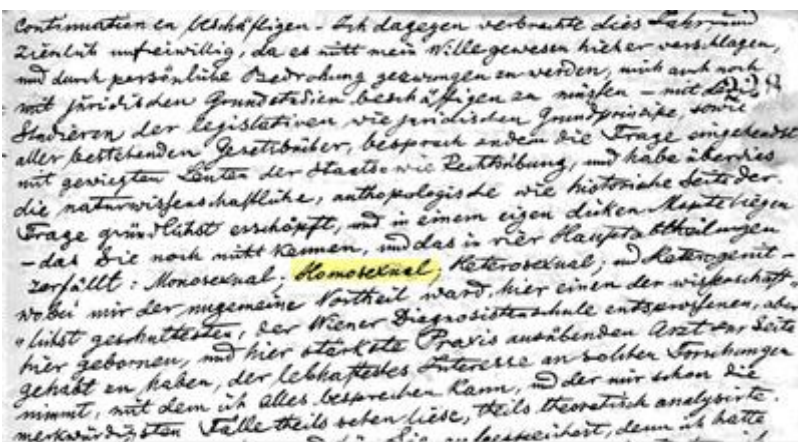 Continuation zu beschäftigen - Ich dagegen verbrachte dies Jahr, und
ziemlich unfreiwillig, da es nicht mein Wille gewesen hieher verschlagen,
und durch persönliche Bedrohung gezwungen zu werden, mich auch noch
mit juridischen Grundstudien beschäftigen zu müssen - mit
Studieren der legislativen wie juridischen Grundprincipe, sowie
aller bestehenden Gesetzbücher, besprach zudem die Frage eingehendst
mit gewiegten Leuten der Staats wie Rechtsübung, und habe überdies
die naturwissenschaftliche, anthopologische wie historische Seite der
Frage gründlichst erschöpft, und in einem eigen dicken Mspte liegen
- das Sie noch nicht kennen, und das in vier Hauptabtheilungen
zerfällt: Monosexual; Homosexual; Heterosexual; und Heterogenit -
wobei mir der ungemeine Vortheil ward, hier einen der wissenschaft"
"lichst geschultesten, der Wiener Diagnostikerschule entsprossenen, aber
hier gebornen, und hier stärkste Praxis ausübenden Arzt zur Seite
gehabt zu haben, der lebhaftestes Interesse an solchen Forschungen
nimmt, mit dem ich alles besprechen kann, und der mir schon die
merkwürdigsten Fälle theils sehen liess, theils theoretisch analysirte.